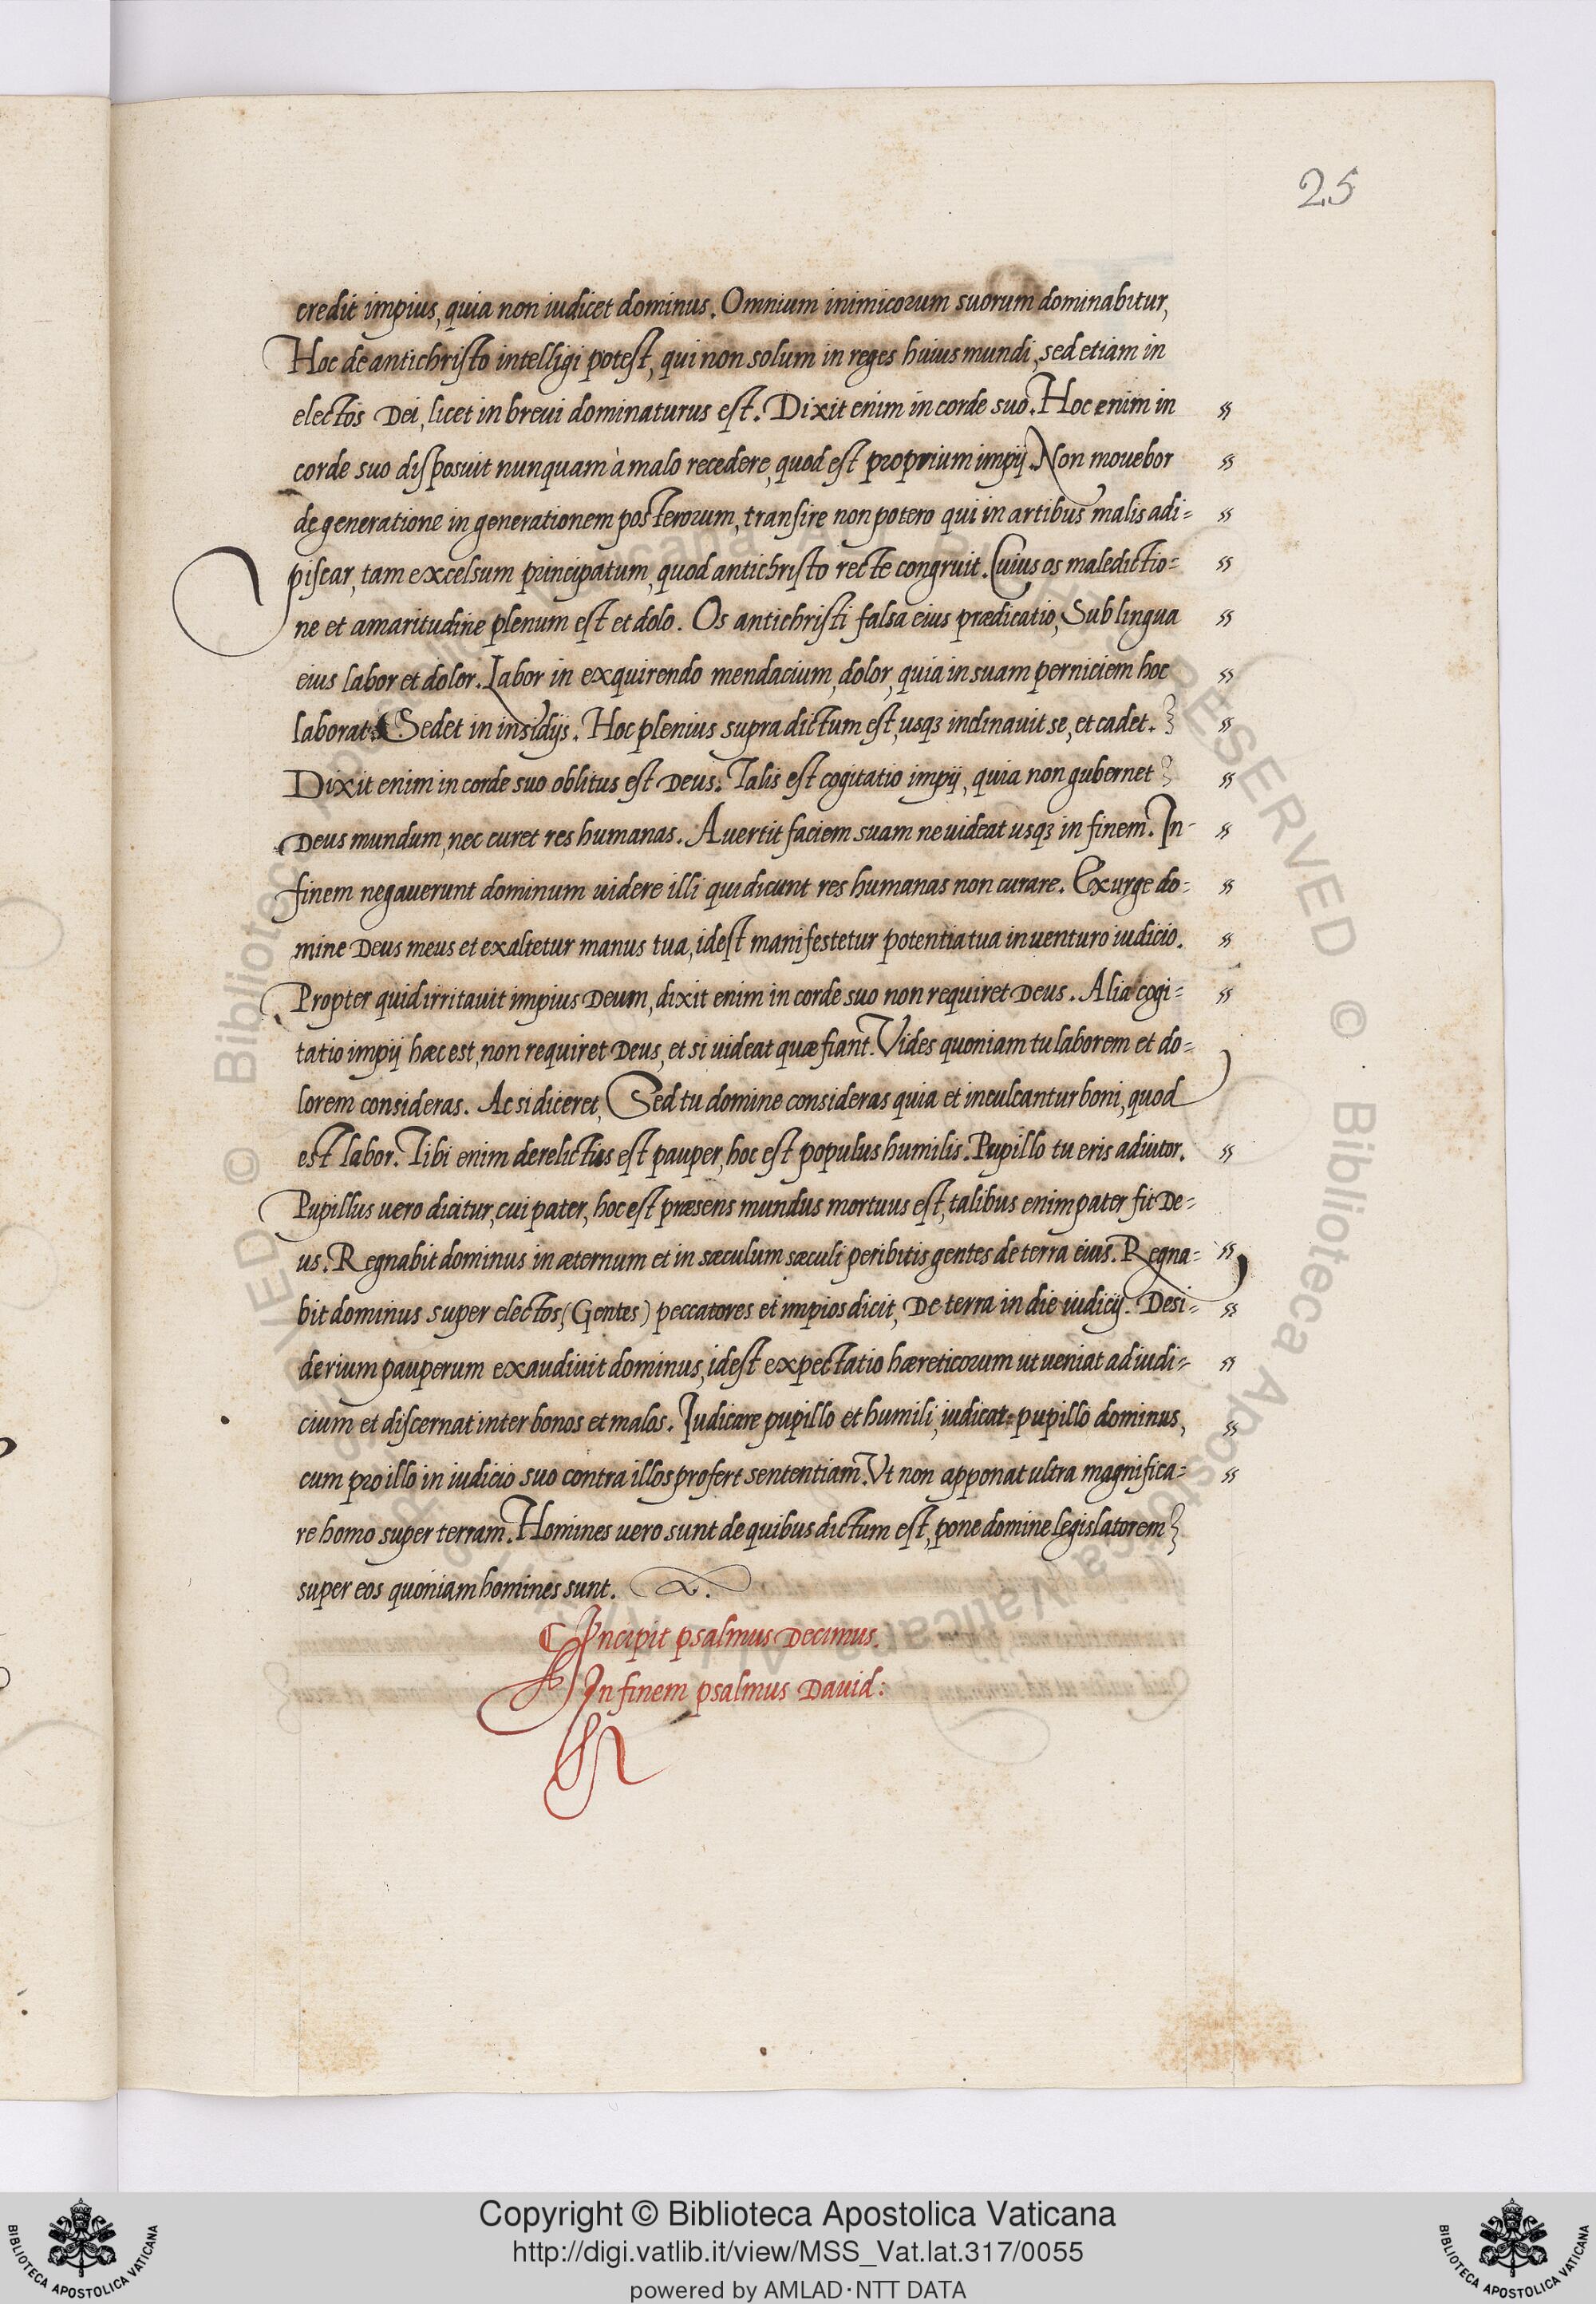 25
credit impius, quia non iudicet dominus. Omnium inimicorum suorum dominabitur,
Hoc de antichristo intelligi potest, qui non solum in reges huius mundi, sed etiam in
electos Dei, licet in breui dominaturus est. Dixit enim in corde suo. Hoc enim in
corde suo disposuit nunquam à malo recedere, quod est proprium impij. Non mouebor
de generatione in generationem posterorum, transire non potero qui in artibus malis adi=
piscar, tam excelsum principatum, quod antichristo recte congruit. Cuius os maledictio=
ne et amaritudine plenum est et dolo. Os antichristi falsa eius prædicatio, Sub lingua
eius labor et dolor. Labor in exquirendo mendacium, dolor, quia in suam perniciem hoc
laborat. Sedet in insidijs. Hoc plenius supra dictum est, usqȝ inclinauit se, et cadet.
Dixit enim in corde suo oblitus est Deus. Talis est cogitatio impij, quia non gubernet
Deus mundum, nec curet res humanas. Auertit faciem suam ne uideat usqȝ in finem. In
finem negauerunt dominum uidere illi qui dicunt res humanas non curare. Exurge do=
mine Deus meus et exaltetur manus tua, idest manifestetur potentia tua in uenturo iudicio.
Propter quid irritauit impius Deum, dixit enim in corde suo non requiret Deus. Alia cogi=
tatio impij hæc est, non requiret Deus, et si uideat quæ fiant. Vides quoniam tu laborem et do=
lorem consideras. Ac si diceret, Sed tu domine consideras quia et inculcantur boni, quod
est labor. Tibi enim derelictus est pauper, hoc est populus humilis. Pupillo tu eris adiutor.
Pupillus uero dicitur, cui pater, hoc est præsens mundus mortuus est, talibus enim pater fit De=
us. Regnabit dominus in æternum et in sæculum sæculi peribitis gentes de terra eius. Regna=
bit dominus super electos, (Gentes) peccatores et impios dicit, De terra in die iudicij. Desi=
derium pauperum exaudiuit dominus, idest expectatio hæreticorum ut ueniat ad iudi=
cium et discernat inter bonos et malos. Iudicare pupillo et humili, iudicat pupillo dominus,
cum pro illo in iudicio suo contra illos profert sententiam. Vt non apponat ultra magnifica=
re homo super terram. Homines uero sunt de quibus dictum est, pone domine legislatorem
super eos quoniam homines sunt.
Incipit psalmus Decimus.
In finem psalmus Dauid:
Copyright © Biblioteca Apostolica Vaticana
http://digi.vatlib.it/view/MSS_Vat.lat.317/0055
powered by AMLAD·NTT DATA